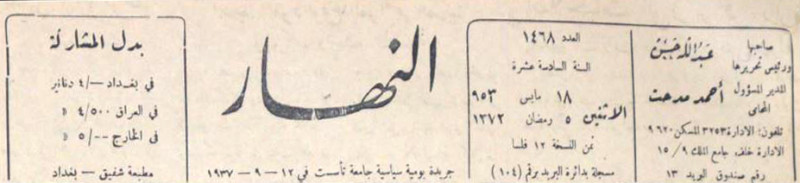 صاحبها
ورئيس تحريرها
عبدالله حسن
المدير المسؤول
المحامي
أحمد مدحت
تلفون: الادارة ٣٢٥٣ المسكن ٩٦٢٠
الادارة خلف جامع الملك ٩ / ١٥
رقم صندوق البريد ١٣
العدد ١٤٦٨
السنة السادسة عشرة
الاثنين ١٨ مايس ٩٥٣
٥ رمضان ١٣٧٢
ثمن النسخة ١٢ فلسا
مسجلة بدائرة البريد برقم (١٠٤)
النهار
جريدة يومية سياسية جامعة تأسست في ١٢ - ٩ - ١٩٣٧
بدل المشاركة
في بغداد -/٤ دنانير
في العراق ٤/٥٠٠ »
في الخارج --/٥ »
مطبعة شفيق - بغداد